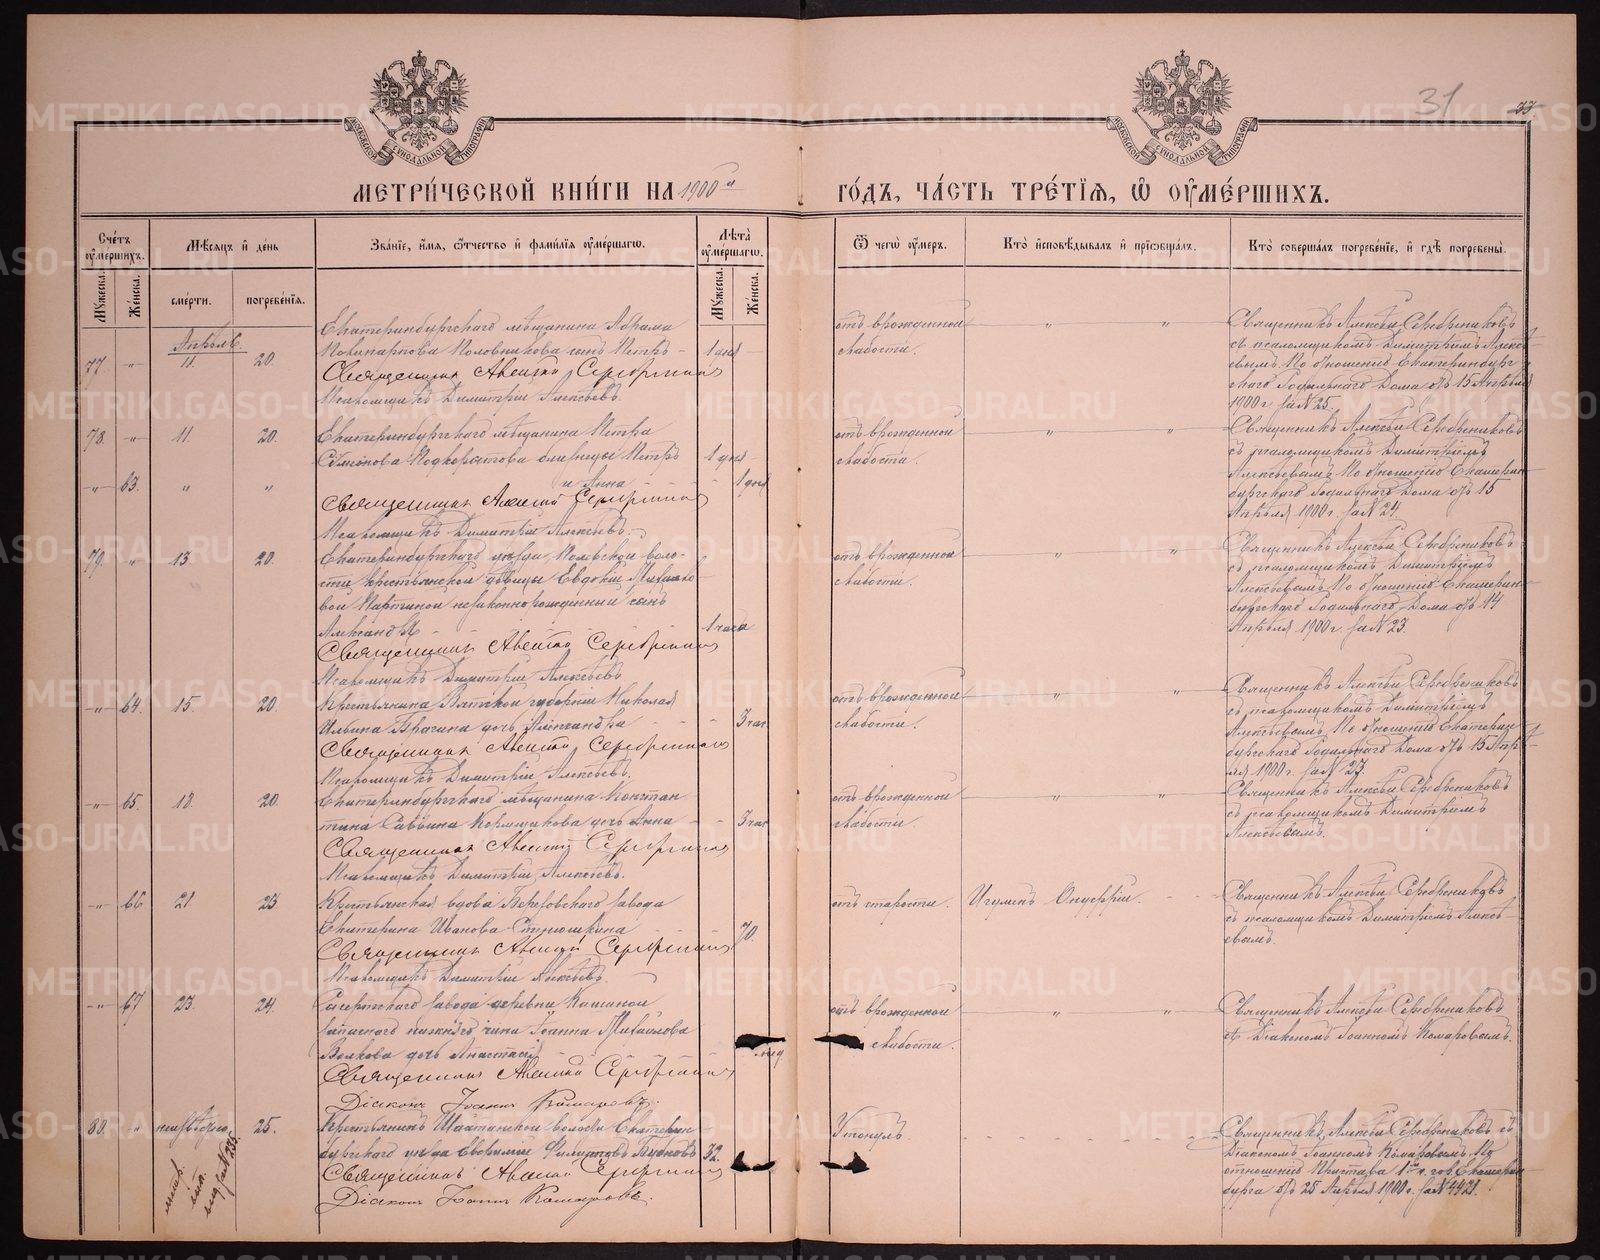 31
МЕТРИ́ЧЕСКОЙ КНИ́ГИ НА 1900й ГО́ДЪ, ЧА́СТЬ ТРЕ́ТІѦ, Ѽ ОУ҆МЕ́РШИХЪ.
Сче́тъ оу҆ме́ршихъ.
Мѣ́сяцъ и҆ де́нь
Зва́нїе, и҆́мѧ, ѻ҆́тчество и҆ фами́лїѧ оу҆ме́ршагѡ.
Лѣ́та оу҆ме́ршагѡ.
Ѿ чегѡ̀ оу҆́меръ.
Кто̀ и҆сповѣ́дывалъ и҆ прїѡбща́лъ.
Кто̀ соверша́лъ погребе́нїе, и҆ гдѣ̀ погребены̀.
Мꙋ́жеска.
Же́нска.
сме́рти.
погребе́нїѧ.
Мꙋ́жеска.
Же́нска.
Апрѣль
77 " 11. 20.
Екатеринбургскаго мѣщанина Абрама
Поликарпова Половникова сынъ Петръ
1 дня
Священникъ Алексій Серебренниковъ
Псаломщикъ Димитрій Алексѣевъ.
отъ врожденной
слабости.
Священникъ Алексѣй Серебрениковъ
съ псаломщикомъ Димитріемъ Алексѣ-
евымъ По отношенію Екатеринбург-
скаго Родильнаго Дома отъ 15 Апрѣля
1900 г. за № 25.
78. " 11 20.
Екатеринбургскаго мѣщанина Петра
близнецы Петръ
1 дня
" 63. " "
и Анна
1 дня
Священникъ Алексій Серебренниковъ
Псаломщикъ Димитрій Алексѣевъ.
отъ врожденной
слабости.
Священникъ Алексѣй Серебрениковъ
съ псаломщикомъ Димитріемъ
Алексѣевымъ По отношенію Екатерин-
бургскаго Родильнаго Дома отъ 15
Апрѣля 1900 г. за № 24.
79. " 13 20.
Екатеринбургскаго уѣзда, воло-
сти крестьянской дѣвицы Евдокіи Михайло-
вой незаконнорожденный сынъ
Александръ
1 часа
Священникъ Алексій Серебренниковъ
Псаломщикъ Димитрій Алексѣевъ
отъ врожденной
слабости.
Священникъ Алексѣй Серебрениковъ
съ псаломщикомъ Димитріемъ
Алексѣевымъ По отношенію Екатерин-
бургскаго Родильнаго Дома отъ 14
Апрѣля 1900 г. за № 23.
" 64. 15. 20.
Крестьянина Вятской губерніи Николая
Ильина Брагина дочь Александра
3 час
Священникъ Алексій Серебренниковъ
Псаломщикъ Димитрій Алексѣевъ.
отъ врожденной
слабости.
Священникъ Алексѣй Серебрениковъ
съ псаломщикомъ Димитріемъ
Алексѣевымъ По отношенію Екатерин-
бургскаго Родильнаго Дома отъ 15 Апрѣ-
ля 1900 г. за № 27.
" 65. 18. 20.
Екатеринбургскаго мѣщанина Констан
тина Саввина Кормщикова дочь Анна
3 час
Священникъ Алексій Серебренниковъ
Псаломщикъ Димитрій Алексѣевъ.
отъ врожденной
слабости.
Священникъ Алексѣй Серебрениковъ
съ псаломщикомъ Димитріемъ
Алексѣевымъ.
" 66 21 23
Крестьянская вдова Березовскаго завода
Екатерина Иванова
70.
Священникъ Алексій Серебренниковъ
Псаломщикъ Димитрій Алексѣевъ.
отъ старости.
Игуменъ Онуфрій.
Священникъ Алексѣй Серебрениковъ
съ псаломщикомъ Димитріемъ Алексѣ
евымъ.
" 67 23. 24.
Сысертскаго завода деревни Кашиной
запаснаго нижняго чина Іоанна Михайлова
Волкова дочь Анастасія
Священникъ Алексій Серебренниковъ
Діаконъ Іоаннъ Комаровъ.
отъ врожденной
слабости.
Священникъ Алексѣй Серебрениковъ
съ Діакономъ Іоанномъ Комаровымъ.
80. " неизвѣстно. 25.
Крестьянинъ Шайтанской волости Екатерин-
бургскаго уѣзда
32.
Священникъ Алексій Серебренниковъ
Діаконъ Іоаннъ Комаровъ.
Утонулъ
Священникъ Алексѣй Серебрениковъ съ
Діакономъ Іоанномъ Комаровымъ. По
отношенію Пристава 1й ч. гор. Екатерин-
бурга отъ 25 Апрѣля 1900 г. за № 4421.
METRIKI.GASO-URAL.RU